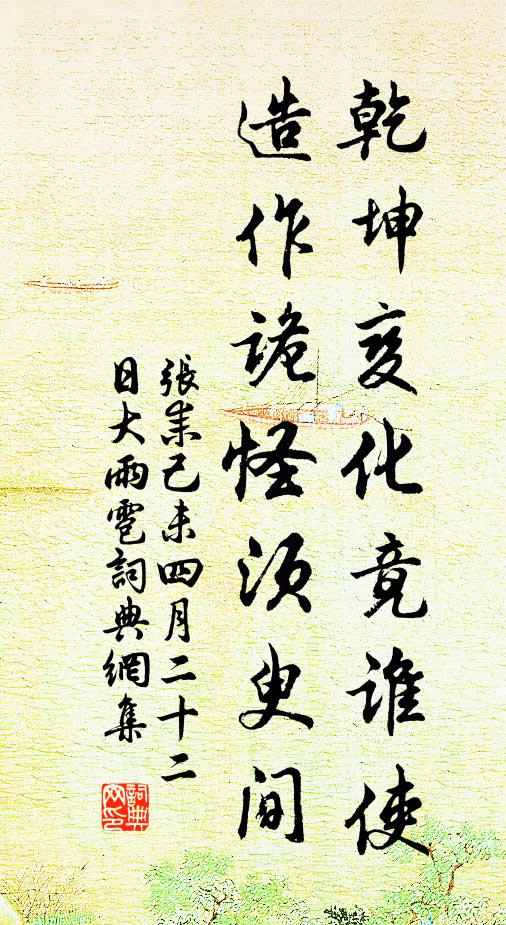 乾坤变化竟谁使
造作诡怪须臾间
張耒己未四月二十二
日大雨雹詞典網集
詞典
网印